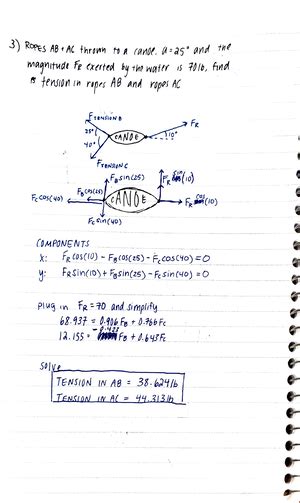 3) ROPES AB + AC thrown to a canoe. α=25° and the
magnitude FR exerted by the water is 70lb, find
tension in ropes AB and ropes AC
FTENSIONB
25°
40°
CANOE
FR
10°
FTENSIONC
FBsin(25)
FRsin(10)
FBcos(25)
FCcos(40)
CANOE
FRcos(10)
FCsin(40)
COMPONENTS
x: FRcos(10) - FBcos(25) - FCcos(40) = 0
y: FRsin(10) + FBsin(25) - FCsin(40) = 0
plug in FR = 70 and simplify
68.937 = 0.906FB + 0.766FC
12.155 = -0.423FB + 0.643FC
solve
TENSION IN AB = 38.624lb
TENSION IN AC = 44.313lb